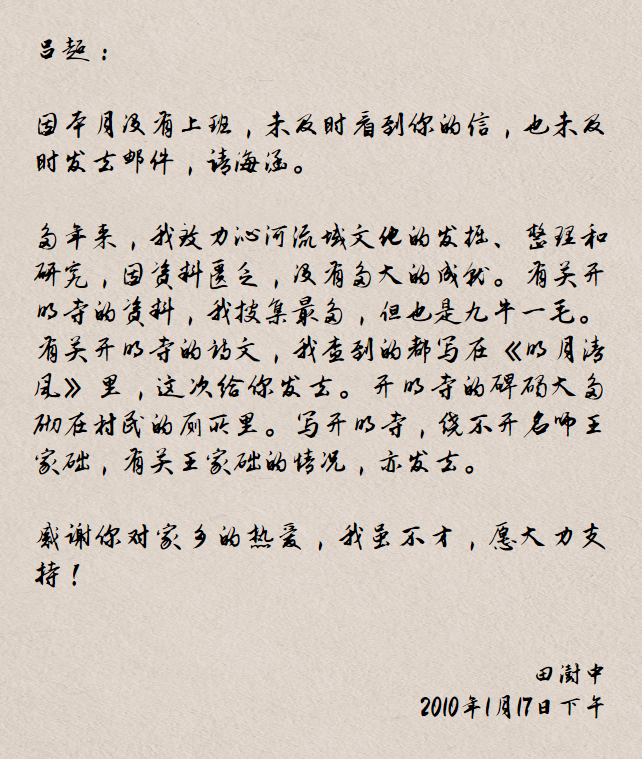 吕超：
因本月没有上班，未及时看到你的信，也未及
时发去邮件，请海涵。
多年来，我致力沁河流域文化的发掘、整理和
研究，因资料匮乏，没有多大的成就。有关开
明寺的资料，我搜集最多，但也是九牛一毛。
有关开明寺的诗文，我查到的都写在《明月清
风》里，这次给你发去。开明寺的碑碣大多
砌在村民的厕所里。写开明寺，绕不开名师王
家础，有关王家础的情况，亦发去。
感谢你对家乡的热爱，我虽不才，愿大力支
持！
田澍中
2010年1月17日下午